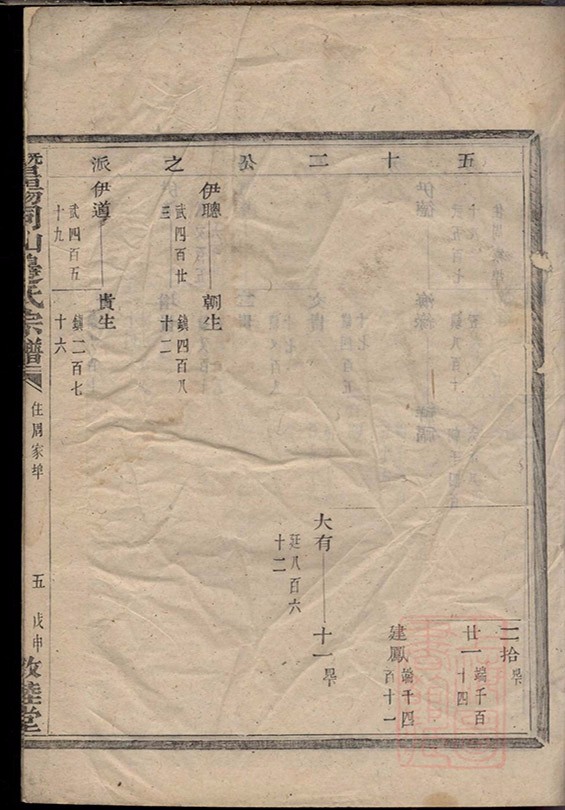 五十二公之派
二拾
廿一
端千百
十四
建鳳
端千四
百十一
大有
廷八百六
十二
十一
伊聰
武四百廿
三
朝生
鎮四百八
十二
伊道
武四百五
十九
貴生
鎮二百七
十六
暨陽同山邊氏宗譜
住周家埠
五
戊申
敦睦堂